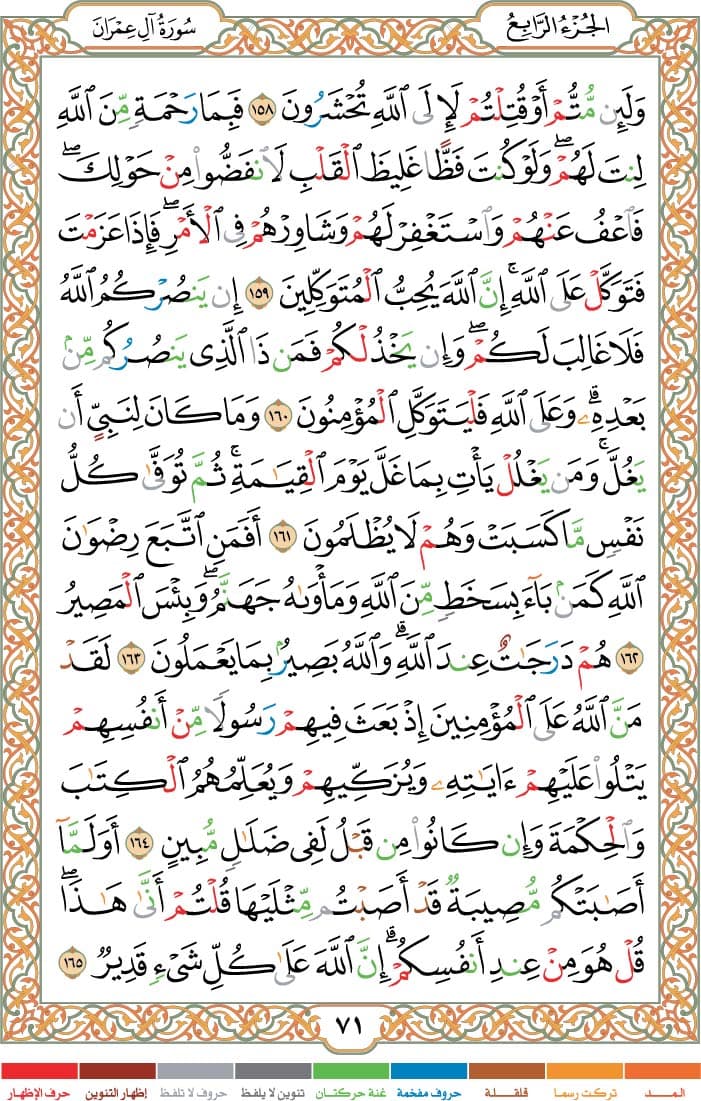 الجُزْءُ الرَّابِعُ
سُورَةُ آلِ عِمْرَانَ
وَلَئِن مُّتُّمْ أَوْ قُتِلْتُمْ لَإِلَى ٱللَّهِ تُحْشَرُونَ ١٥٨ فَبِمَا رَحْمَةٍ مِّنَ ٱللَّهِ
لِنتَ لَهُمْ ۖ وَلَوْ كُنتَ فَظًّا غَلِيظَ ٱلْقَلْبِ لَٱنفَضُّوا۟ مِنْ حَوْلِكَ ۖ
فَٱعْفُ عَنْهُمْ وَٱسْتَغْفِرْ لَهُمْ وَشَاوِرْهُمْ فِى ٱلْأَمْرِ ۖ فَإِذَا عَزَمْتَ
فَتَوَكَّلْ عَلَى ٱللَّهِ ۚ إِنَّ ٱللَّهَ يُحِبُّ ٱلْمُتَوَكِّلِينَ ١٥٩ إِن يَنصُرْكُمُ ٱللَّهُ
فَلَا غَالِبَ لَكُمْ ۖ وَإِن يَخْذُلْكُمْ فَمَن ذَا ٱلَّذِى يَنصُرُكُم مِّنۢ
بَعْدِهِۦ ۗ وَعَلَى ٱللَّهِ فَلْيَتَوَكَّلِ ٱلْمُؤْمِنُونَ ١٦٠ وَمَا كَانَ لِنَبِىٍّ أَن
يَغُلَّ ۚ وَمَن يَغْلُلْ يَأْتِ بِمَا غَلَّ يَوْمَ ٱلْقِيَٰمَةِ ۚ ثُمَّ تُوَفَّىٰ كُلُّ
نَفْسٍ مَّا كَسَبَتْ وَهُمْ لَا يُظْلَمُونَ ١٦١ أَفَمَنِ ٱتَّبَعَ رِضْوَٰنَ
ٱللَّهِ كَمَنۢ بَآءَ بِسَخَطٍ مِّنَ ٱللَّهِ وَمَأْوَىٰهُ جَهَنَّمُ ۖ وَبِئْسَ ٱلْمَصِيرُ
١٦٢ هُمْ دَرَجَٰتٌ عِندَ ٱللَّهِ ۗ وَٱللَّهُ بَصِيرٌۢ بِمَا يَعْمَلُونَ ١٦٣ لَقَدْ
مَنَّ ٱللَّهُ عَلَى ٱلْمُؤْمِنِينَ إِذْ بَعَثَ فِيهِمْ رَسُولًا مِّنْ أَنفُسِهِمْ
يَتْلُوا۟ عَلَيْهِمْ ءَايَٰتِهِۦ وَيُزَكِّيهِمْ وَيُعَلِّمُهُمُ ٱلْكِتَٰبَ
وَٱلْحِكْمَةَ وَإِن كَانُوا۟ مِن قَبْلُ لَفِى ضَلَٰلٍ مُّبِينٍ ١٦٤ أَوَلَمَّآ
أَصَٰبَتْكُم مُّصِيبَةٌ قَدْ أَصَبْتُم مِّثْلَيْهَا قُلْتُمْ أَنَّىٰ هَٰذَا ۖ
قُلْ هُوَ مِنْ عِندِ أَنفُسِكُمْ ۗ إِنَّ ٱللَّهَ عَلَىٰ كُلِّ شَىْءٍ قَدِيرٌ ١٦٥
٧١
المــــد تركت رسما قلقـــلة حروف مفخمة غنة حركتان تنوين لا يلفظ حروف لا تلفظ إظهار التنوين حرف الإظهار